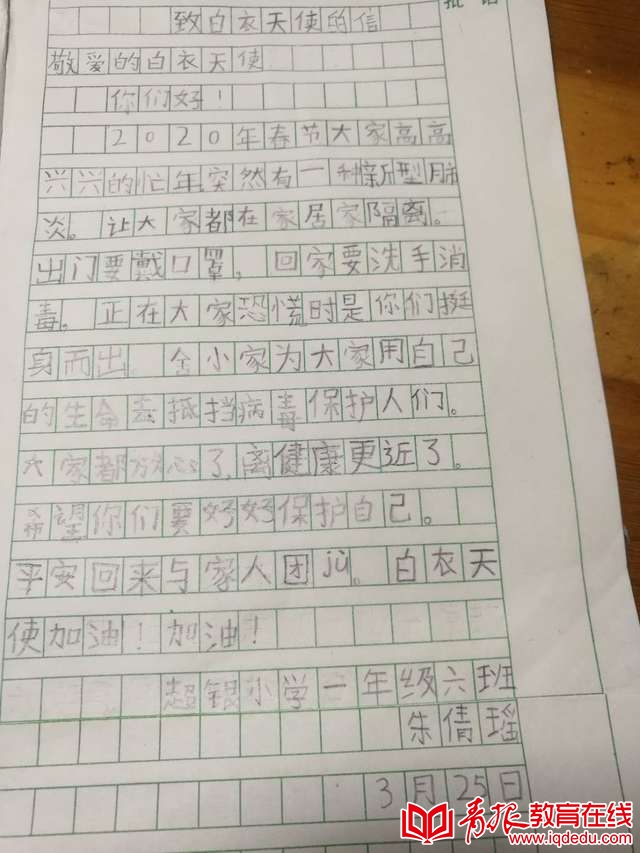 批语
致白衣天使的信
敬爱的白衣天使
你们好！
2020年春节大家高高
兴兴的忙年突然有一种新型肺
炎。让大家都在家居家隔离。
出门要戴口罩，回家要洗手消
毒。正在大家恐慌时是你们挺
身而出 舍小家为大家用自己
的生命去抵挡病毒保护人们。
大家都放心了，离健康更近了。
希望你们要好好保护自己。
平安回来与家人团jù。白衣天
使加油！加油！
超银小学一年级六班
朱倩瑶
3月25日
青报教育在线
www.iqdedu.com